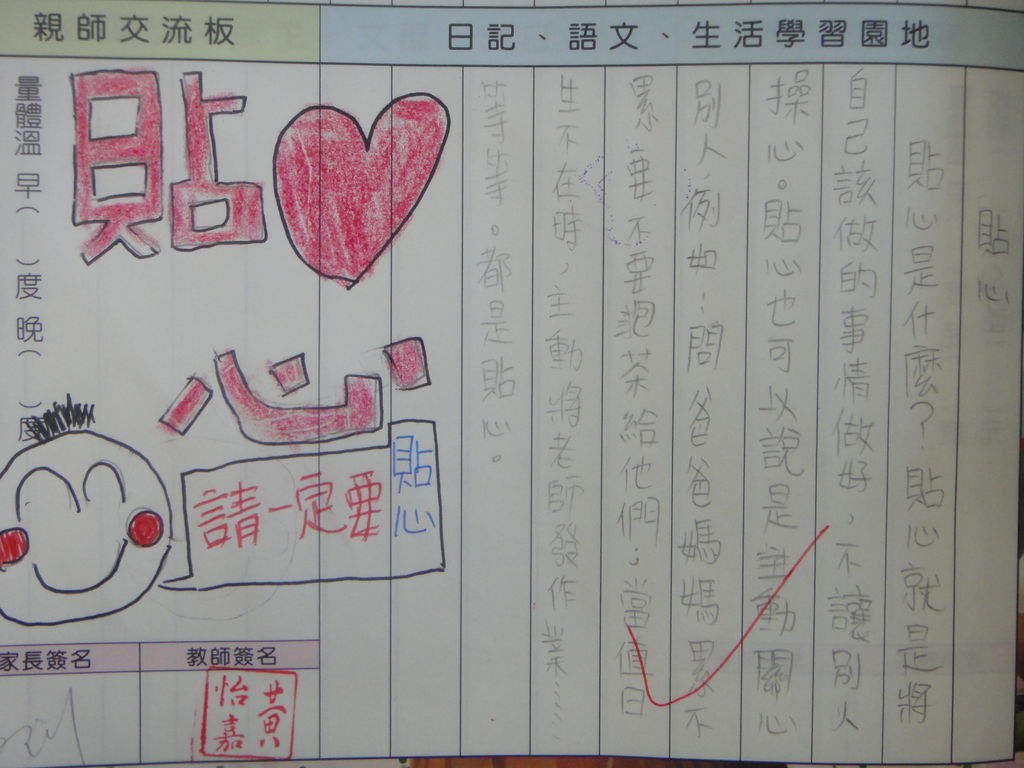 親師交流板
日記、語文、生活學習園地
貼心
貼心是什麼?貼心就是將
自己該做的事情做好,不讓別人
操心。貼心也可以說是主動關心
別人,例如:問爸爸媽媽累不
累要不要泡茶給他們;當值日
生不在時,主動將老師發作業……
等等。都是貼心。
貼心
請一定要貼心
量體溫 早( )度 晚( )度
家長簽名
教師簽名
黃怡嘉